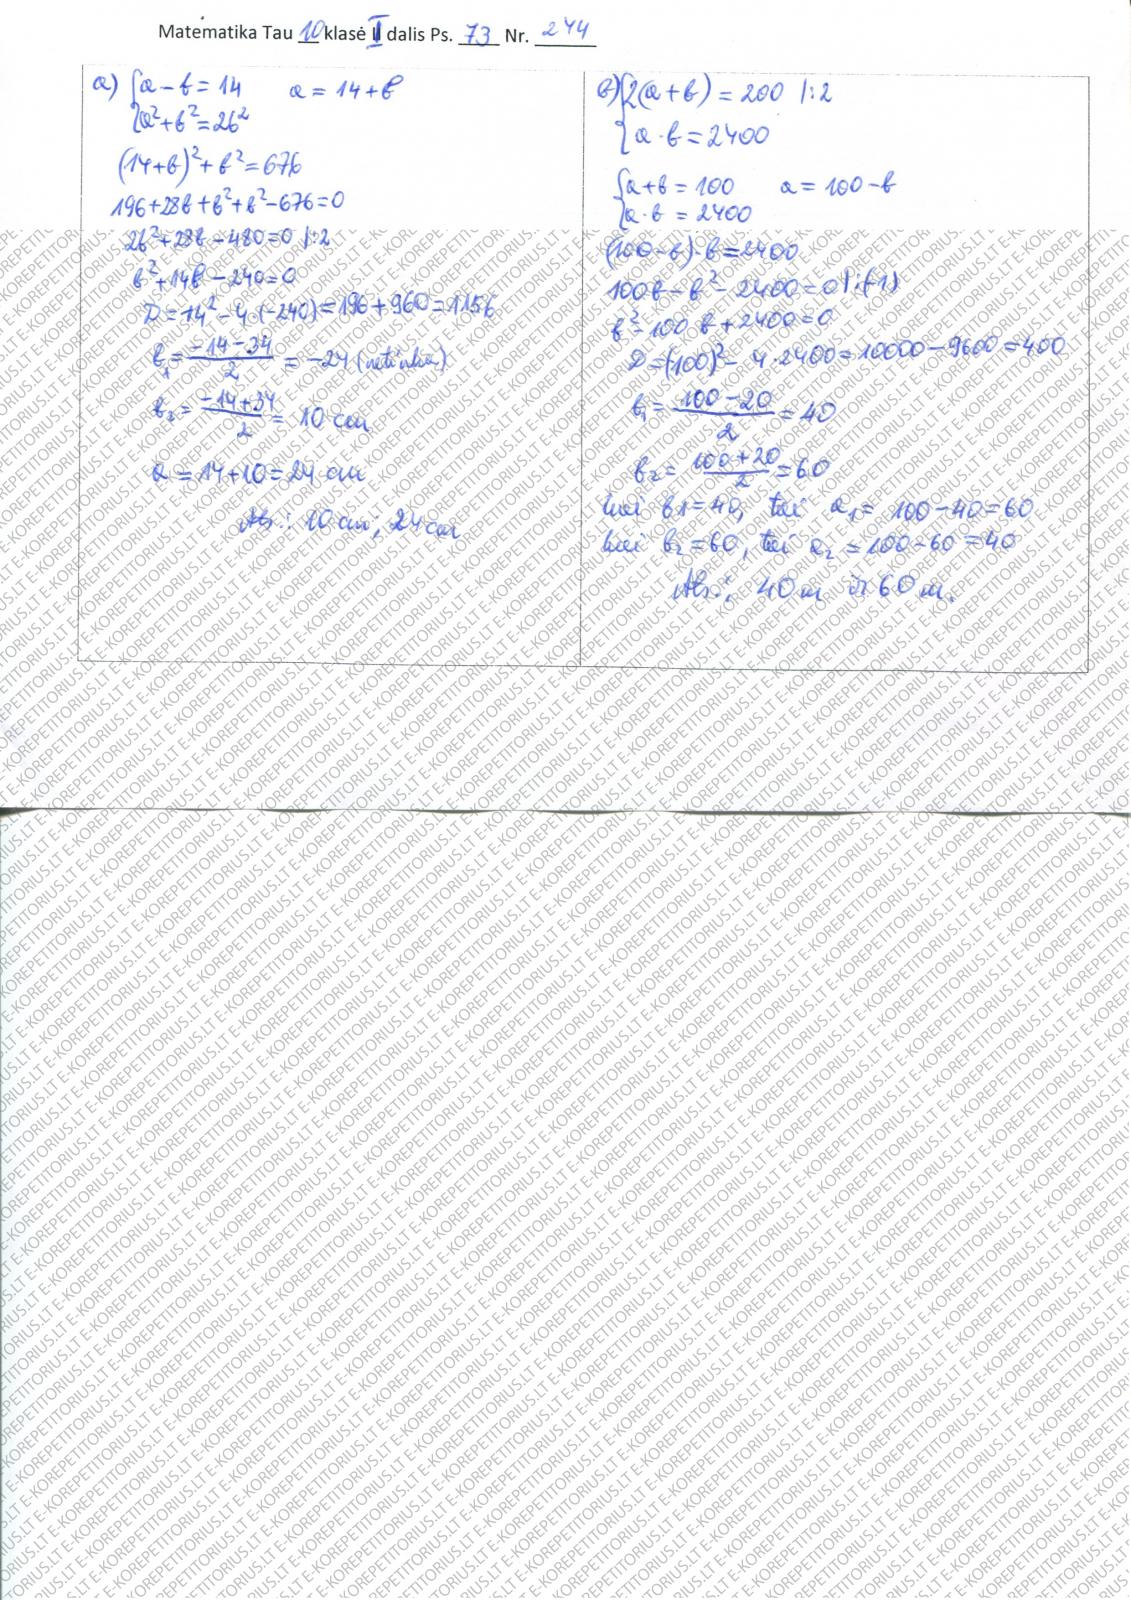 Matematika Tau 10 klasė II dalis Ps. 73 Nr. 244
a) {a - b = 14 a = 14 + b
{a² + b² = 26²
(14+b)² + b² = 676
196+28b+b²+b²-676=0
2b²+28b-480=0 |:2
b²+14b-240=0
D=14²-4·(-240)=196+960=1156
b₁ = (-14-34)/2 = -24 (netinka)
b₂ = (-14+34)/2 = 10 cm
a = 14+10 = 24 cm
Ats.: 10 cm; 24 cm
b) {2(a+b) = 200 |:2
{a·b = 2400
{a+b = 100 a = 100-b
{a·b = 2400
(100-b)·b=2400
100b-b²-2400=0 |:(-1)
b²-100b+2400=0
D=(100)²-4·2400=10000-9600=400
b₁ = (100-20)/2 = 40
b₂ = (100+20)/2 = 60
kai b1=40, tai a₁ = 100-40=60
kai b₂=60, tai a₂ = 100-60=40
Ats.: 40 m ir 60 m.
E-KOREPETITORIUS.LT